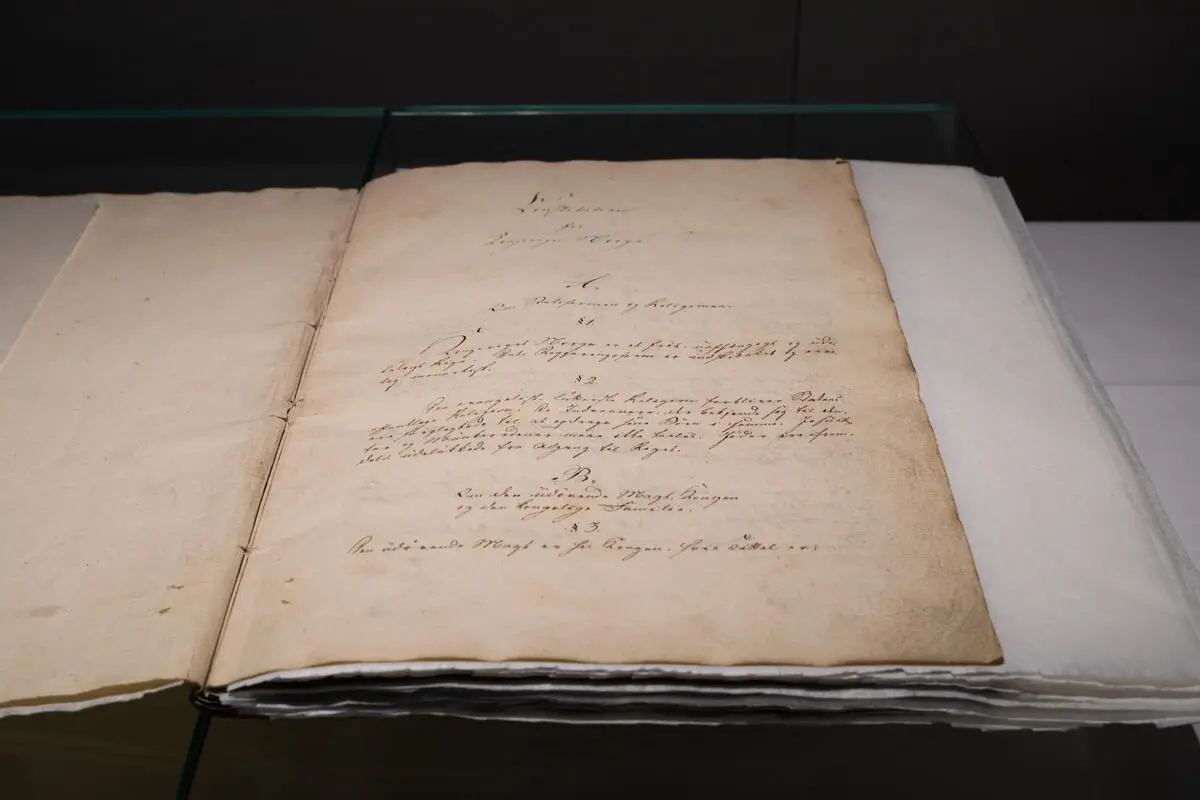 Constitution
for
Kongeriget Norge
A.
Om Statsformen og Religionen.
§ 1.
Kongeriget Norge er et frit, uafhængigt og ude-
leligt Rige. Dets Regjeringsform er indskrænket og arve-
lig monarkisk.
§ 2.
Den evangelisk lutterske Religion forbliver Statens
offentlige Religion. De Indvaanere, der bekjende sig til den,
ere forpligtede til at opdrage sine Børn i samme. Jesuit-
ter og Munkeordener maae ikke taales. Jøder ere frem-
deles udelukkede fra Adgang til Riget.
B.
Om den udøvende Magt, Kongen
og den kongelige Familie.
§ 3.
Den udøvende Magt er hos Kongen, hvis Tittel er: